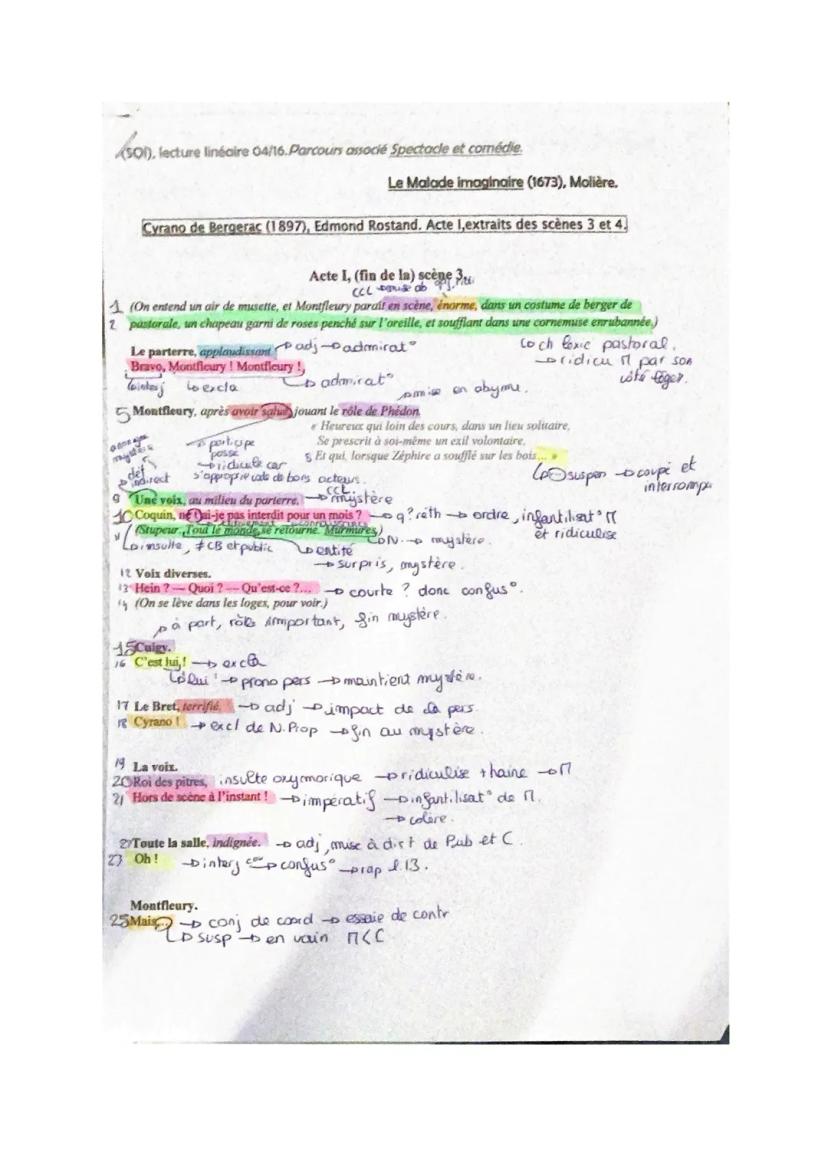 (SOI), lecture linéaire 04/16. Parcours associé Spectacle et comédie.
Le Malade imaginaire (1673), Molière.
Cyrano de Bergerac (1897), Edmond Rostand. Acte I, extraits des scènes 3 et 4.
Acte I, (fin de la) scène 3.
CCL
1 (On entend un air de musette, et Montfleury paraît en scène, énorme, dans un costume de berger de
2 pastorale, un chapeau garni de roses penché sur l'oreille, et soufflant dans une cornemuse enrubannée.)
Le parterre, applaudissant → adj → admirat°
↳ ch lexic pastoral.
Bravo, Montfleury ! Montfleury !
→ ridicu M par son
côté léger.
↳ interj ↳ excla ↳ admirat°
→ mise en abyme.
5 Montfleury, après avoir salué, jouant le rôle de Phédon
« Heureux qui loin des cours, dans un lieu solitaire,
Se prescrit à soi-même un exil volontaire,
5 Et qui, lorsque Zéphire a soufflé sur les bois… »
→ participe
passé
→ ridicule car
s'approprie de bons acteurs.
↳ suspen → coupé et
interrompu
mystère
indirect
9 Une voix, au milieu du parterre. → mystère
CCL
10 Coquin, ne t'ai-je pas interdit pour un mois ? → q? réth → ordre, infantilisat° M
et ridiculise
11 (Stupeur. Tout le monde se retourne. Murmures.)
↳ N. → mystère.
↳ insulte, ≠ CB et public ↳ entité
→ surpris, mystère.
12 Voix diverses.
13 Hein ? — Quoi ? — Qu'est-ce ?… → courte ? donc confus°.
14 (On se lève dans les loges, pour voir.)
↳ à part, rôle important, fin mystère.
15 Cuigy.
16 C'est lui ! → excla
↳ lui → prono pers → maintient mystère.
17 Le Bret, terrifié. → adj → impact de la pers.
18 Cyrano ! → excl de N. Prop → fin au mystère.
19 La voix.
20 Roi des pitres, insulte oxymorique → ridiculise + haine → M
21 Hors de scène à l'instant ! → impératif → infantilisat° de M.
→ colère.
22 Toute la salle, indignée. → adj, mise à dist de Pub et C.
23 Oh ! → interj → confus° → rap l.13.
Montfleury.
25 Mais… → conj de coord → essaie de contr
↳ susp → en vain M<C